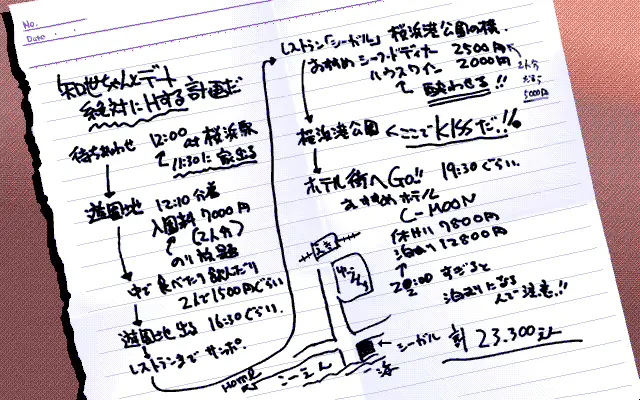 No.
Date
知世ちゃんとデート
絶対にHする計画だ
待ちあわせ 12:00 at 桜浜駅
11:30に家出る
遊園地 12:10分着
入園料 7000円
(2人分)
のり放題
中で食べたり飲んだり
2人で1500円ぐらい
遊園地出る 16:30ぐらい.
レストランまでサンポ.
レストラン「シーガル」桜浜港公園の横.
おすすめシーフードディナー 2500円
ハウスワイン 2000円
2人分
だから
5000円
酔わせる!!
桜浜港公園 ここでKISSだ!!
ホテル街へGo!! 19:30ぐらい.
おすすめホテル
C-MOON
休けい 7800円
泊まり 12800円
22:00 すぎると
泊まりになる
んで注意!!
えき
ゆうえんち
シーガル
こーえん
海
計 23.300えん